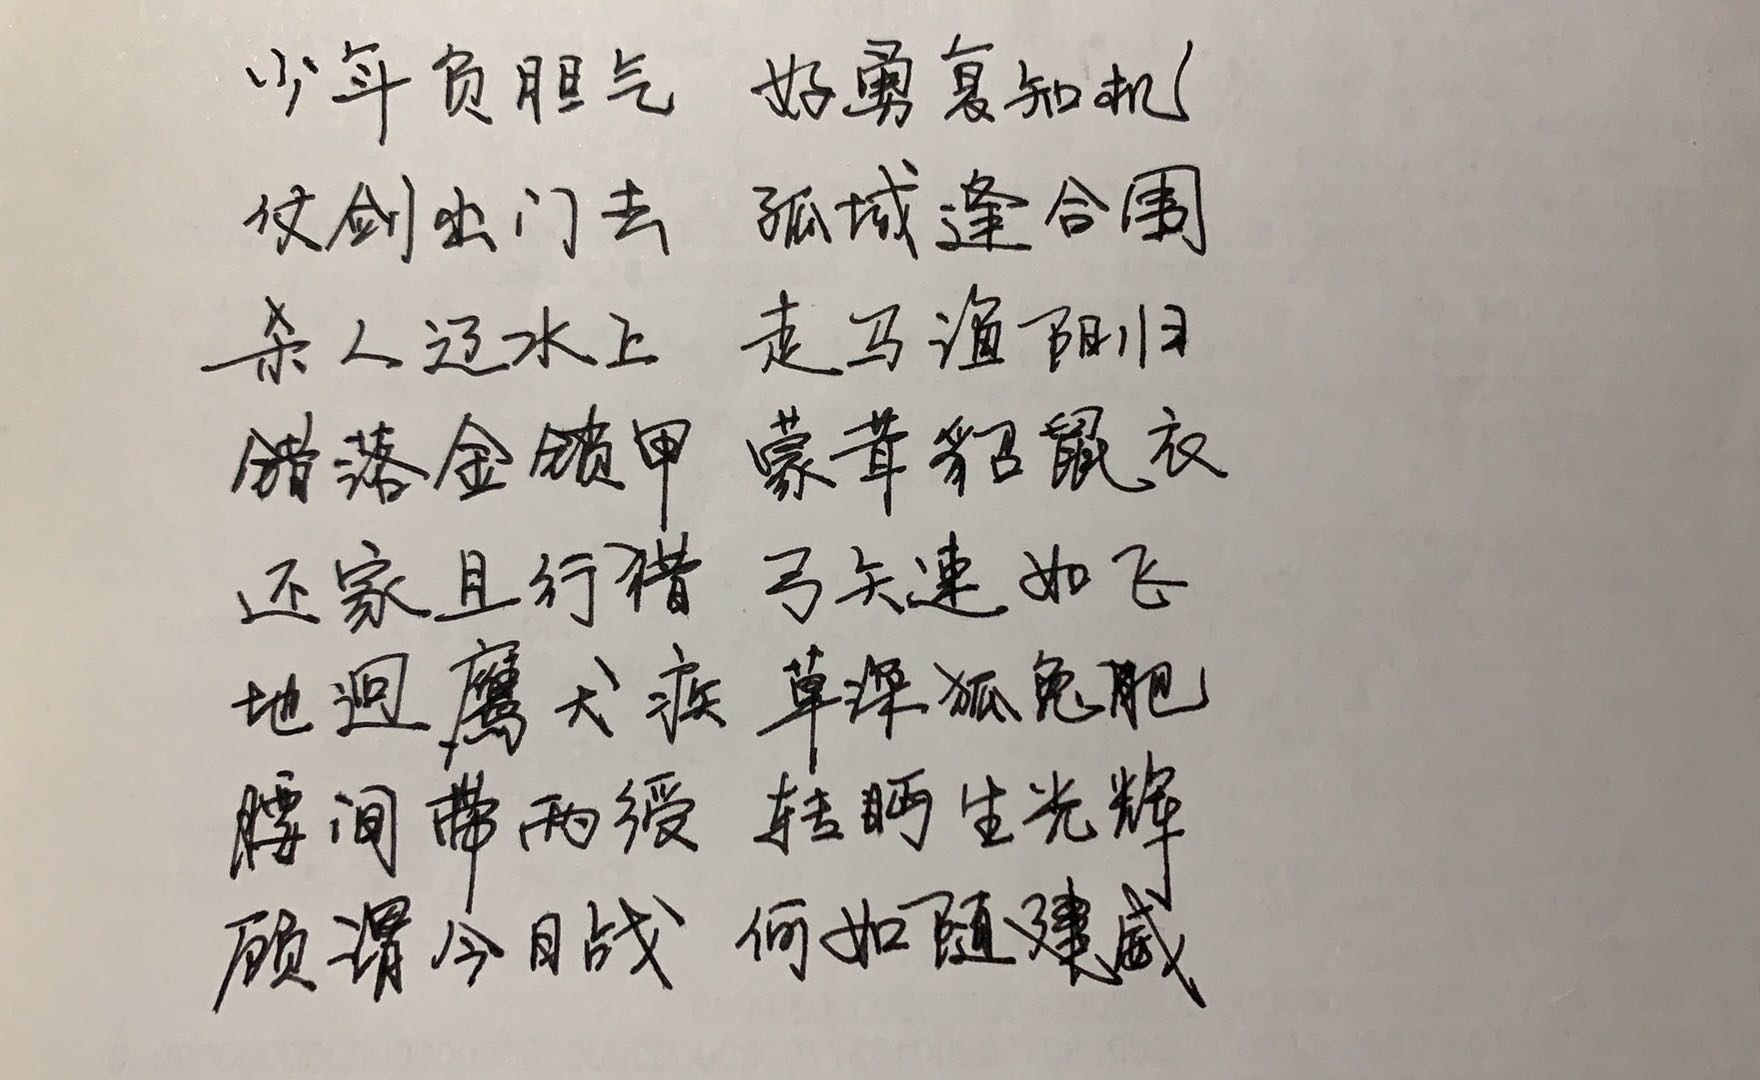 少年负胆气 好勇复知机
仗剑出门去 孤域逢合围
杀人辽水上 走马渔阳归
错落金锁甲 蒙茸貂鼠衣
还家且行猎 弓矢速如飞
地迥鹰犬疾 草深狐兔肥
腰间带两绶 转眄生光辉
顾谓今日战 何如随建威